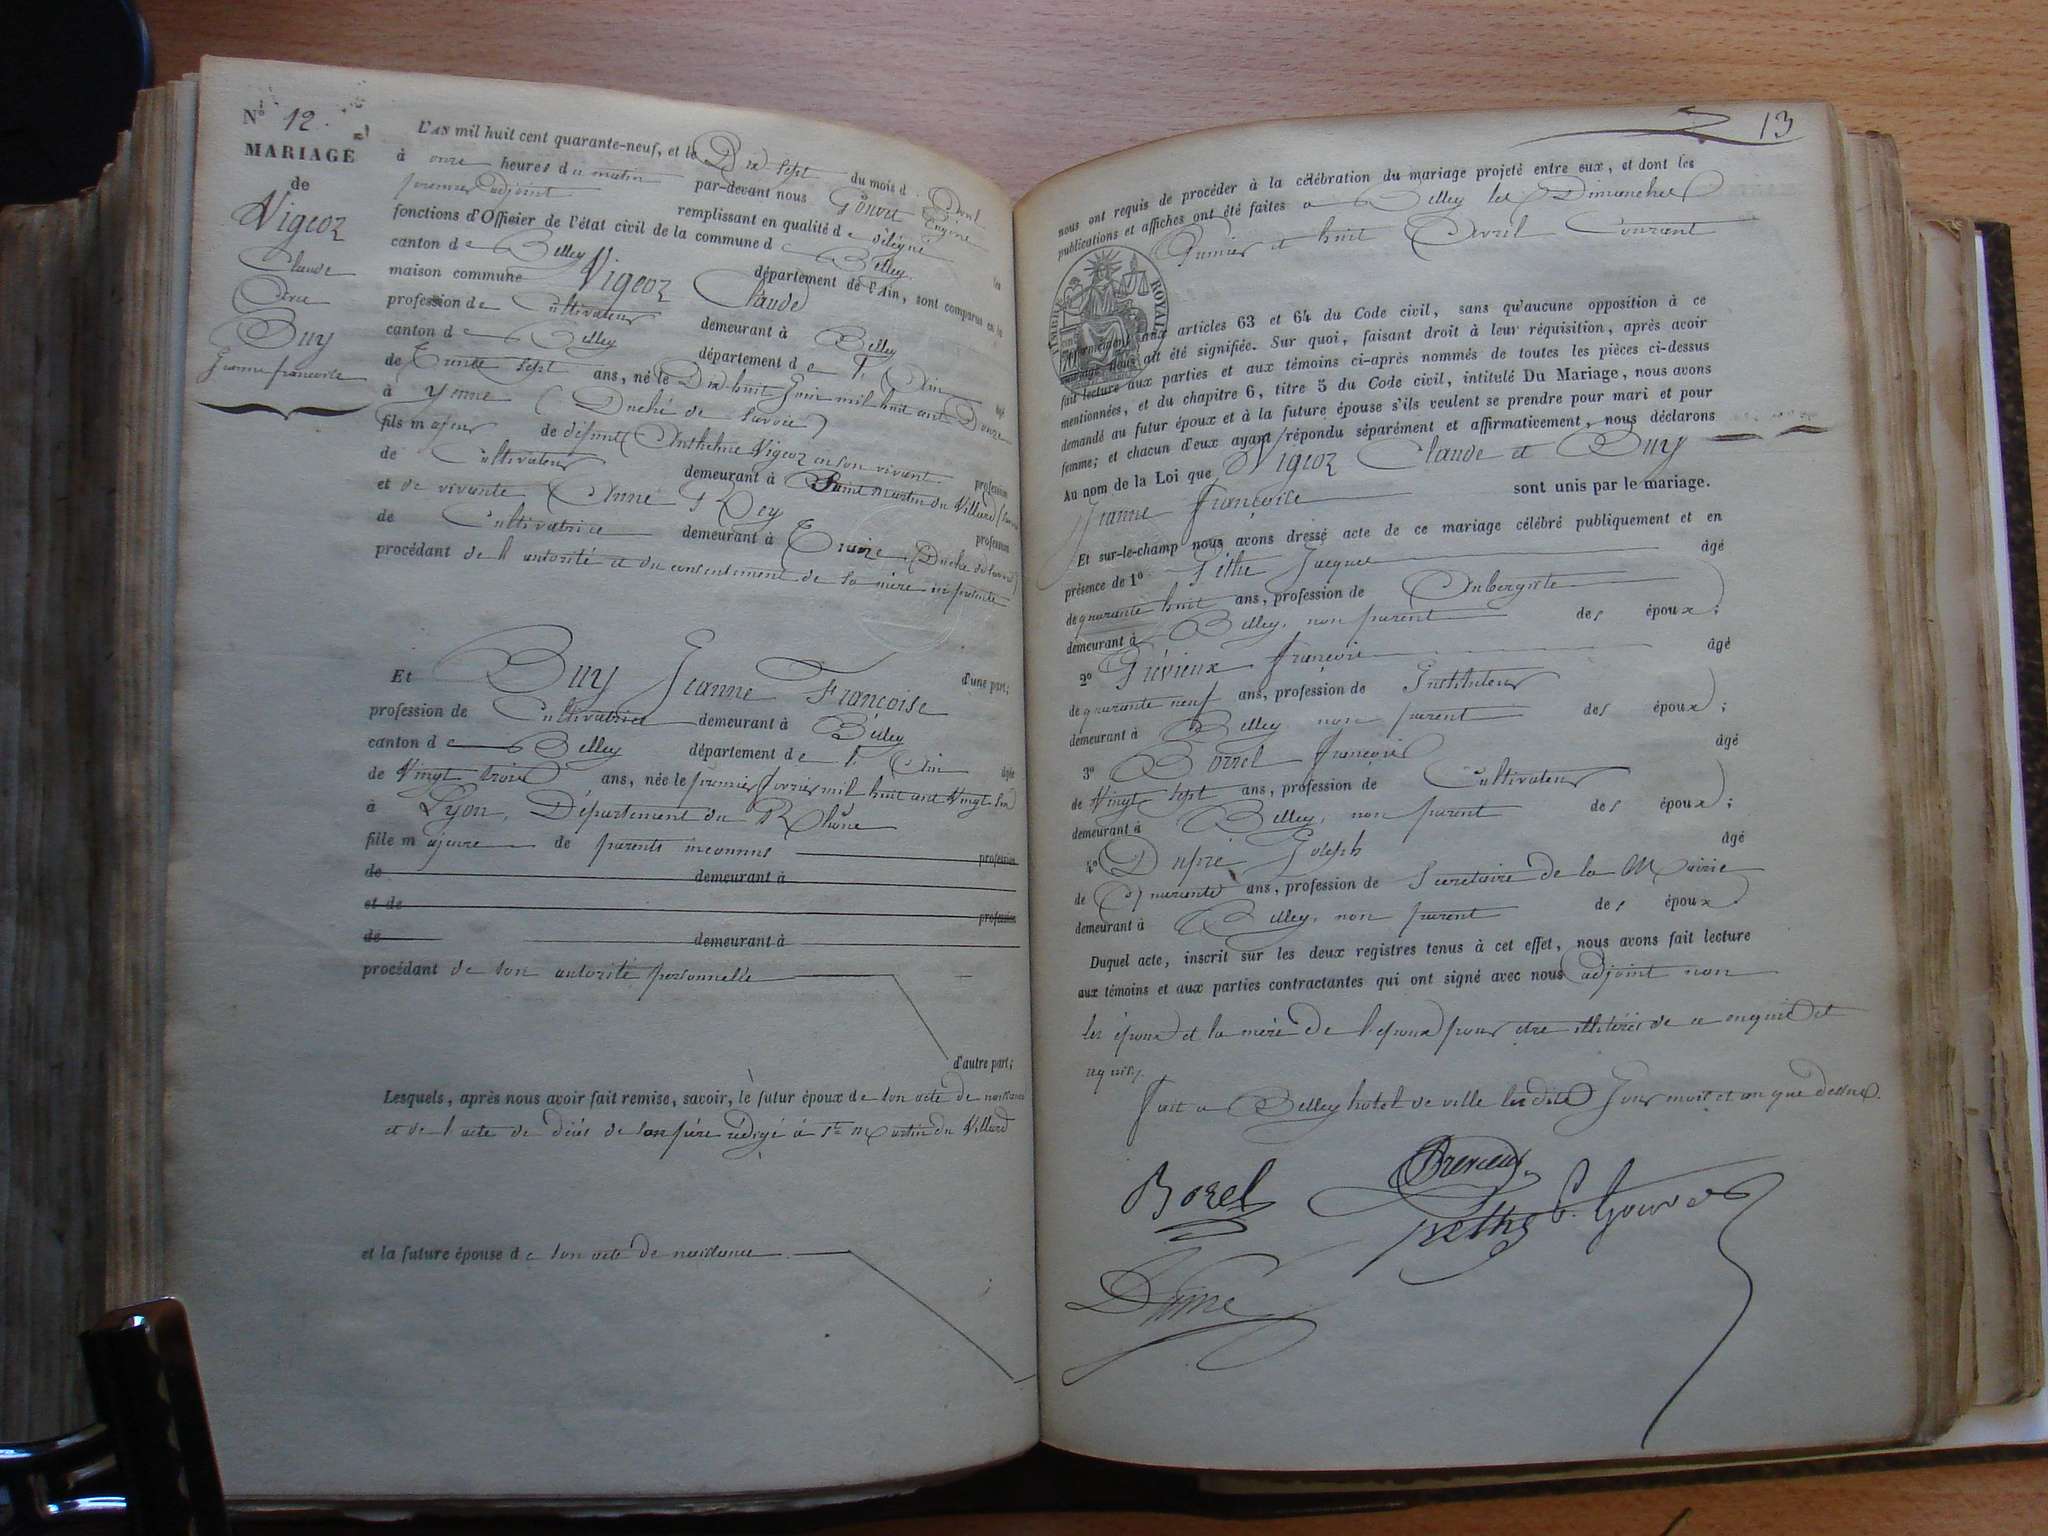 N° 12.
MARIAGE
de
Vigeoz
Claude
Buy
Jeanne françoise
L'AN mil huit cent quarante-neuf, et le Dix sept du mois d'Avril
à onze heures du matin par-devant nous Gouvet Eugène
premier adjoint remplissant en qualité de délégué les
fonctions d'Officier de l'état civil de la commune de Belley
canton de Belley département de l'Ain, sont comparus en la
maison commune Vigeoz Claude
profession de Cultivateur demeurant à Belley
canton de Belley département de l'Ain âgé
de Trente sept ans, né le Dix huit Juin mil huit cent Douze
à Yenne (Duché de Savoie)
fils majeur de défunt Anthelme Vigeoz en son vivant profession
de Cultivateur demeurant à Saint Martin du Villard
et de vivante Anne Rey profession
de Cultivatrice demeurant à (Duché de Savoie)
procédant de l'autorité et du consentement de sa mère ici présente
d'une part;
Et Buy Jeanne Françoise
profession de Cultivatrice demeurant à Belley
canton de Belley département de l'Ain âgée
de Vingt trois ans, née le premier février mil huit cent Vingt six
à Lyon, Département du Rhône
fille majeure de parents inconnus profession
de demeurant à
et de profession
de demeurant à
procédant de son autorité personnelle
d'autre part;
Lesquels, après nous avoir fait remise, savoir, le futur époux de son acte de naissance
et de l'acte de décès de son père rédigé à St Martin du Villard
et la future épouse de son acte de naissance
13
nous ont requis de procéder à la célébration du mariage projeté entre eux, et dont les
publications et affiches ont été faites a Belley les Dimanches
Premier et huit Avril Courant
TIMBRE ROYAL
conformément aux articles 63 et 64 du Code civil, sans qu'aucune opposition à ce
mariage nous ait été signifiée. Sur quoi, faisant droit à leur réquisition, après avoir
fait lecture aux parties et aux témoins ci-après nommés de toutes les pièces ci-dessus
mentionnées, et du chapitre 6, titre 5 du Code civil, intitulé Du Mariage, nous avons
demandé au futur époux et à la future épouse s'ils veulent se prendre pour mari et pour
femme; et chacun d'eux ayant répondu séparément et affirmativement, nous déclarons
Au nom de la Loi que Vigeoz Claude et Buy
Jeanne françoise sont unis par le mariage.
Et sur-le-champ nous avons dressé acte de ce mariage célébré publiquement et en
présence de 1° Péthe Jacques âgé
de quarante huit ans, profession de Aubergiste
demeurant à Belley, non parent des époux;
2° Prévieux françois âgé
de quarante neuf ans, profession de Instituteur
demeurant à Belley non parent des époux;
3° Borrel françois âgé
de Vingt sept ans, profession de Cultivateur
demeurant à Belley, non parent des époux;
4° Dupré Joseph âgé
de Quarante ans, profession de Secretaire de la Mairie
demeurant à Belley, non parent des époux
Duquel acte, inscrit sur les deux registres tenus à cet effet, nous avons fait lecture
aux témoins et aux parties contractantes qui ont signé avec nous adjoint non
les époux et la mère de l'époux pour être illitérés de ce enquis et
requis.
fait a Belley hotel de ville les dits Jour mois et an que dessus.
Borel Previeux
pethe E. Gouvet
Dupré